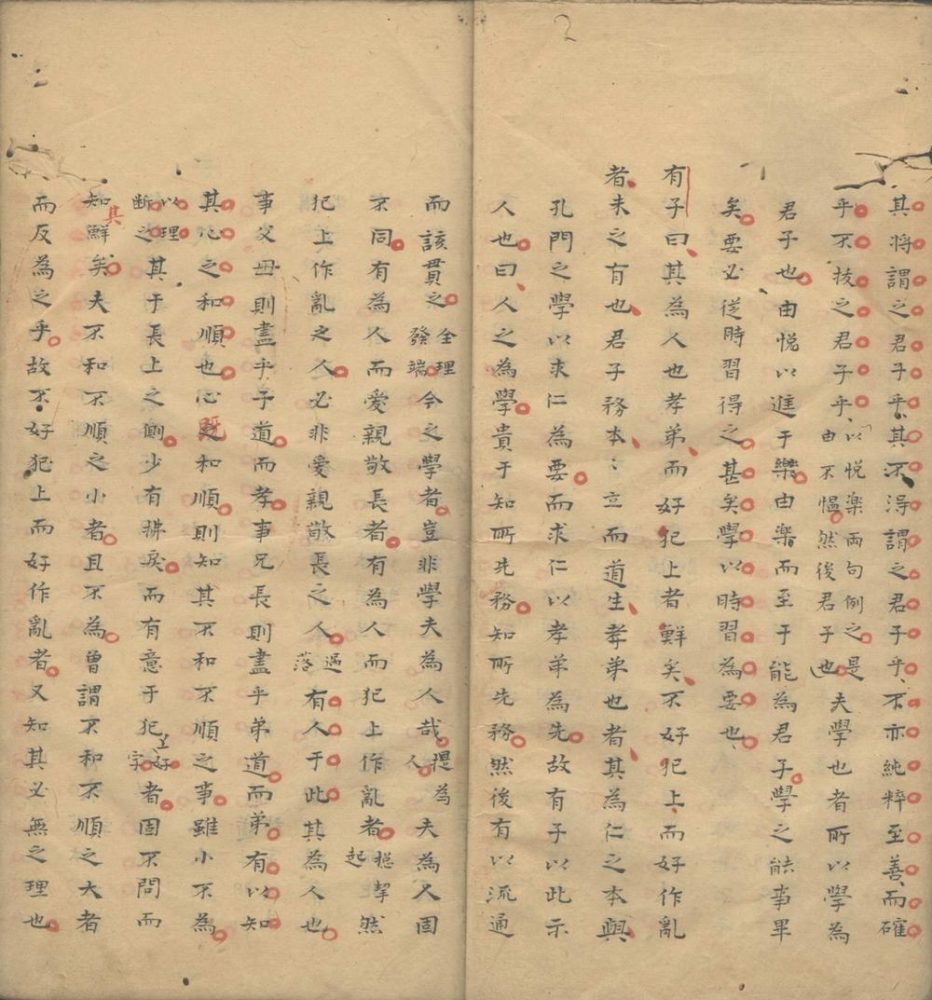 其將謂之君子乎其不得謂之君子乎不亦純粹至善而確
乎不拔之君子乎以悅樂兩句例之是由不慍然後君子也夫學也者所以學為
君子也由悅以進于樂由樂而至于能為君子學之能事畢
矣要必從時習得之甚矣學以時習為要也
有子曰其為人也孝弟而好犯上者鮮矣不好犯上而好作亂
者未之有也君子務本〻立而道生孝弟也者其為仁之本與
孔門之學以求仁為要而求仁以孝弟為先故有子以此示
人也曰人之為學貴于知所先務知所先務然後有以流通
而該貫之全理發端今之學者豈非學夫為人哉提為人夫為人固
不同有為人而愛親敬長者有為人而犯上作亂者起然
犯上作亂之人必非愛親敬長之人過落有人于此其為人也
事父母則盡乎子道而孝事兄長則盡乎弟道而弟有以知
其心之和順也心既之和順則知其不和不順之事雖小不為
以理斷之其于長上之側少有拂戾而有意于犯上好字者固不問而
知其鮮矣夫不和不順之小者且不為曾謂不和不順之大者
而反為之乎故不好犯上而好作亂者又知其必無之理也